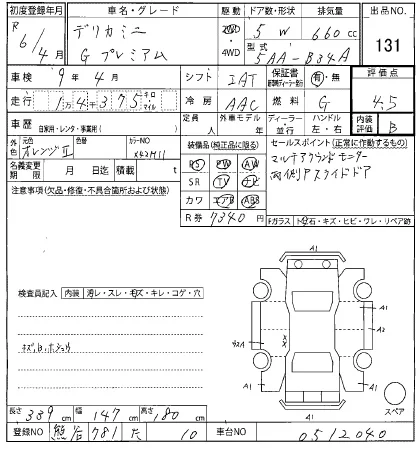 初度登録年月 車名・グレード 駆動 ドア数・形状 排気量 出品NO.
R 6/4月 デリカミニ 2WD 5 W 660cc 131
G プレミアム 4WD 型式 5AA-B34A
車検 9年 4月 シフト IAT 保証書 有・無 評価点
走行 1万4千375 キロ マイル 冷房 AAC 燃料 G 4.5
車歴 自家用・レンタ・事業用( ) 定員 外車モデル 年 ディーラー 並行 ハンドル 左・右 内装評価 B
外色 元色 オレンジⅡ 色替 カラーNO
装備品(純正品に限る) セールスポイント(正常に作動するもの)
名義変更期限 月 日迄 積載 t
PS PW AW マルチアラウンドモニター
SR TV ナビ 両側Pスライドドア
注意事項(欠品・修復・不具合箇所および状態)
カワ エアB ABS
R券 7340円 Fガラス 飛石・キズ・ヒビ・ワレ・リペア跡
検査員記入 内装 汚レ・スレ・キズ・キレ・コゲ・穴
A1
A1
A1
A2
A1
A1
A1
スペア
長さ 339cm 幅 147cm 高さ 180cm
登録NO 熊谷 781 た 10 車台NO 0512040